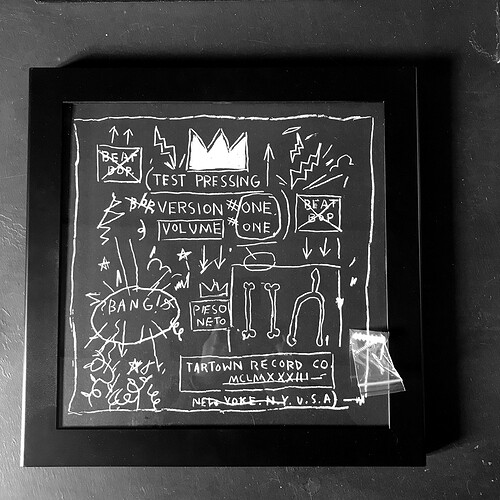 BEAT
BOP
TEST PRESSING
VERSION #ONE
BEAT
BOP
VOLUME #ONE
BANG!
PESO
NETO
TARTOWN RECORD CO.
MCLMXXXIII
NEW YORK. N.Y. U.S.A